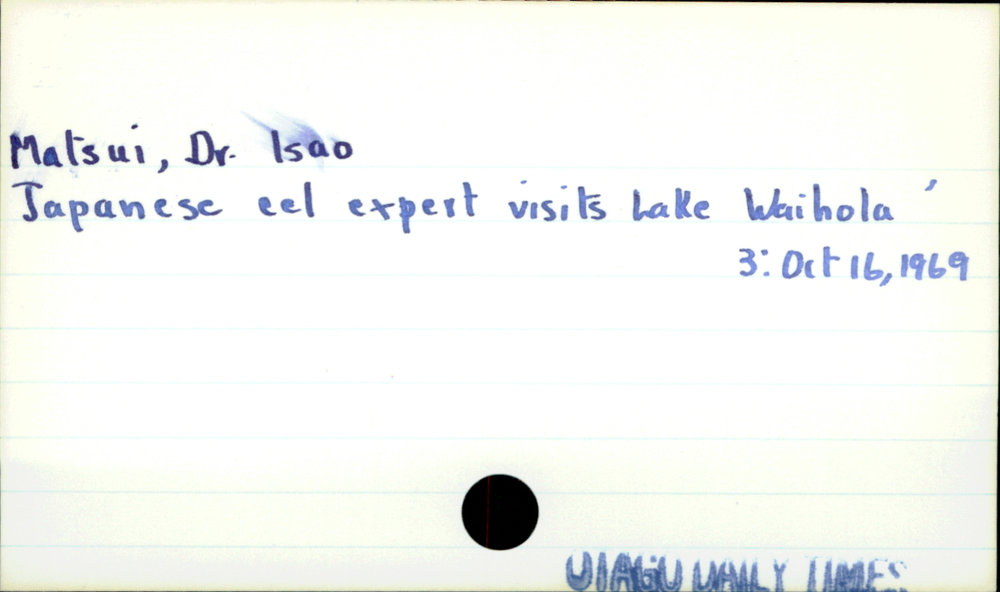 Matsui, Dr. Isao
Japanese eel expert visits Lake Waihola
3: Oct 16, 1969
OTAGO DAILY TIMES